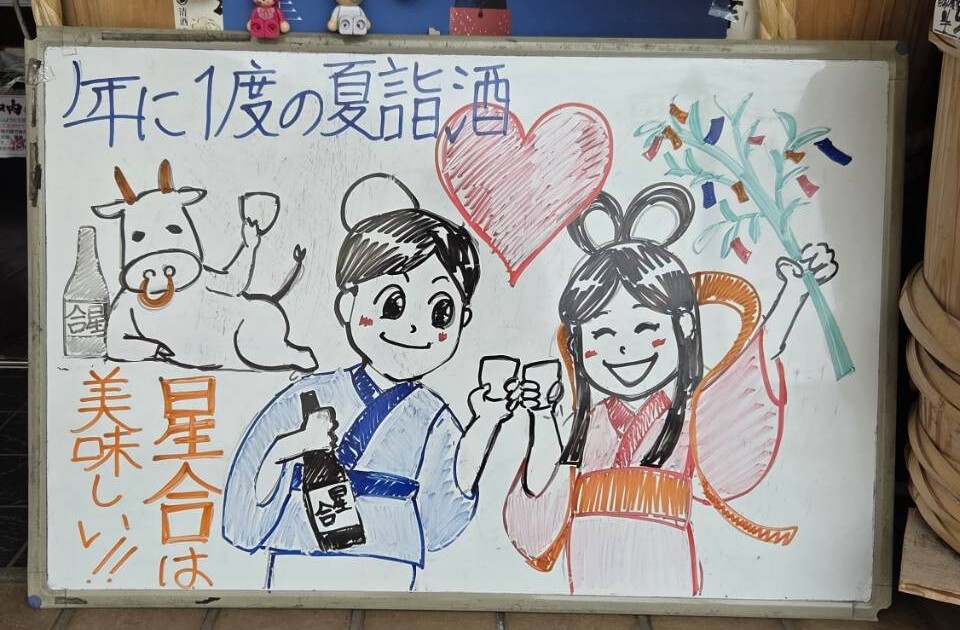 1年に1度の夏詣酒
清酒
星合
星合は
美味しい!!
星合